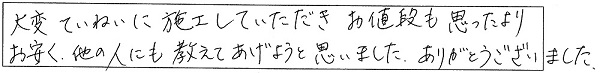 大変 ていねいに 施工していただき お値段も 思ったより
お安く、他の人にも 教えてあげようと思いました。ありがとうござい ました。